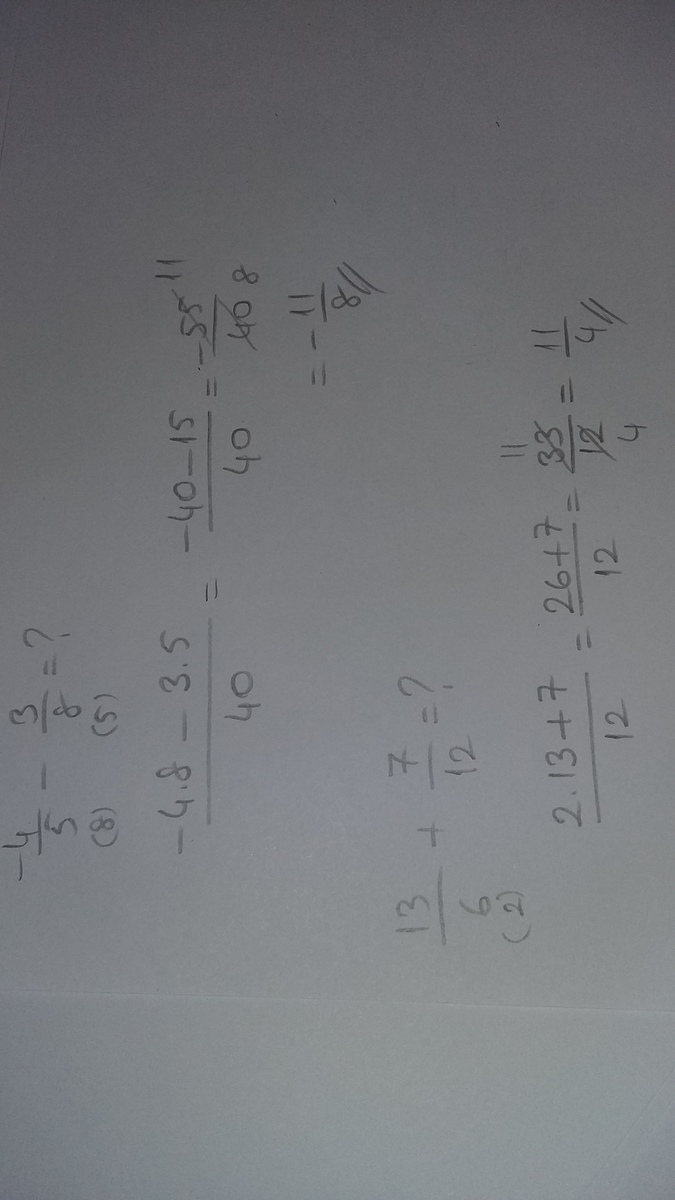 -4/5 - 3/8 = ?
(8) (5)
-4.8 - 3.5 / 40 = -40-15 / 40 = -55 11 / 40 8
= - 11/8 //
13/6 + 7/12 = ?
(2)
2.13+7 / 12 = 26+7 / 12 = 33 11 / 12 4 = 11/4 //